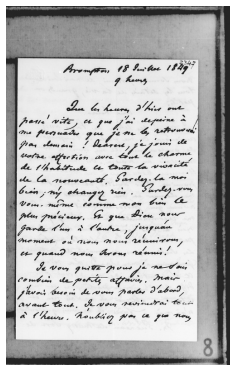 Brompton 18 Juillet 1849
9 heures
Que les heures d'hier ont
passé vite, ce que j'ai de peine à
me persuader que je ne les retrouverai
pas demain! Dearest, je jouis de
votre affection avec tout le charme
de l'habitude et toute la vivacité
de la nouveauté. Gardez-la moi
bien, n'y changez rien. Gardez-vous
vous-même comme mon bien le
plus précieux. Et que Dieu nous
garde l'un à l'autre, jusqu'au
moment où nous nous réunirons,
et quand nous serons réunis!
Je vous quitte pour je ne sais
combien de petites affaires. Mais
j'avais besoin de vous parler d'abord,
avant tout. Je vous reviendrai tout
à l'heure. N'oubliez pas ce que nous
8